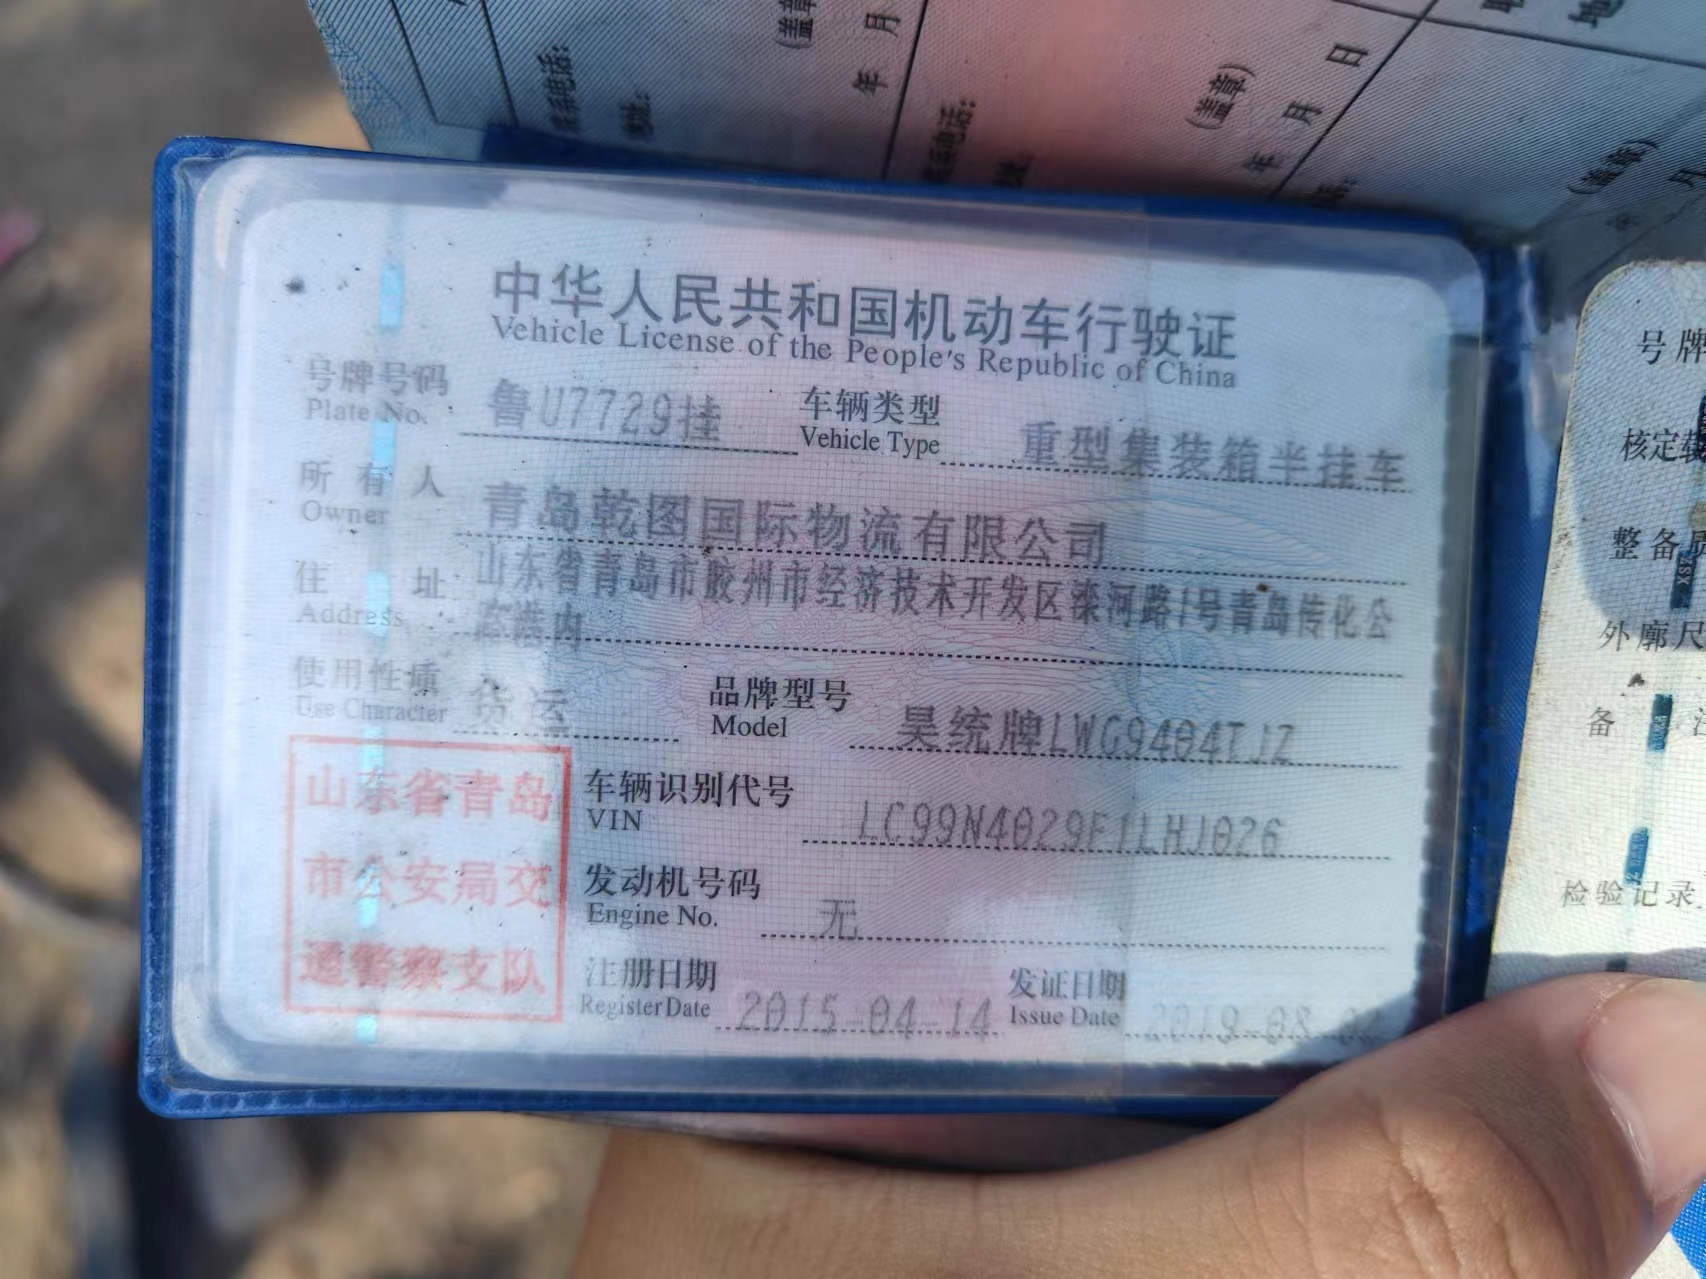 联系电话:
地址:
(盖章)
年 月
联系电话:
(盖章)
年 月 日
(盖章)
中华人民共和国机动车行驶证
Vehicle License of the People's Republic of China
号牌号码 鲁U7729挂 车辆类型 重型集装箱半挂车
Plate No. Vehicle Type
所有人 青岛乾图国际物流有限公司
Owner
住址 山东省青岛市胶州市经济技术开发区滦河路1号青岛传化公
Address 路港内
使用性质 货运 品牌型号 昊统牌LWG9404TJZ
Use Character Model
山东省青岛
市公安局交
通警察支队
车辆识别代号 LC99N4029F1LHJ026
VIN
发动机号码 无
Engine No.
注册日期 2015-04-14 发证日期 2019-08-02
Register Date Issue Date
号牌
核定载
整备质
外廓尺
备
检验记录